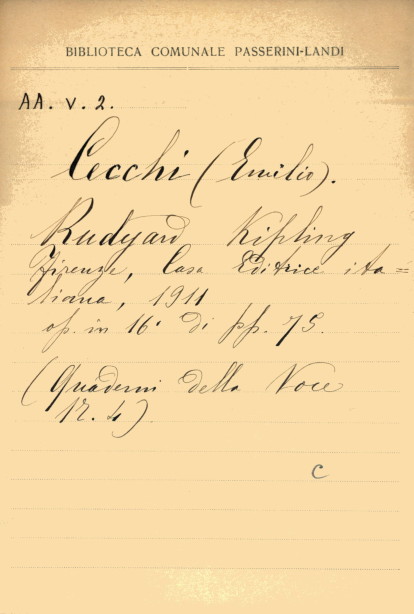 BIBLIOTECA COMUNALE PASSERINI-LANDI
AA. V. 2.
Cecchi (Emilio).
Rudyard Kipling
Firenze, Casa Editrice ita=
liana, 1911
op. in 16° di pp. 75.
(Quaderni della Voce
N. 4)
C